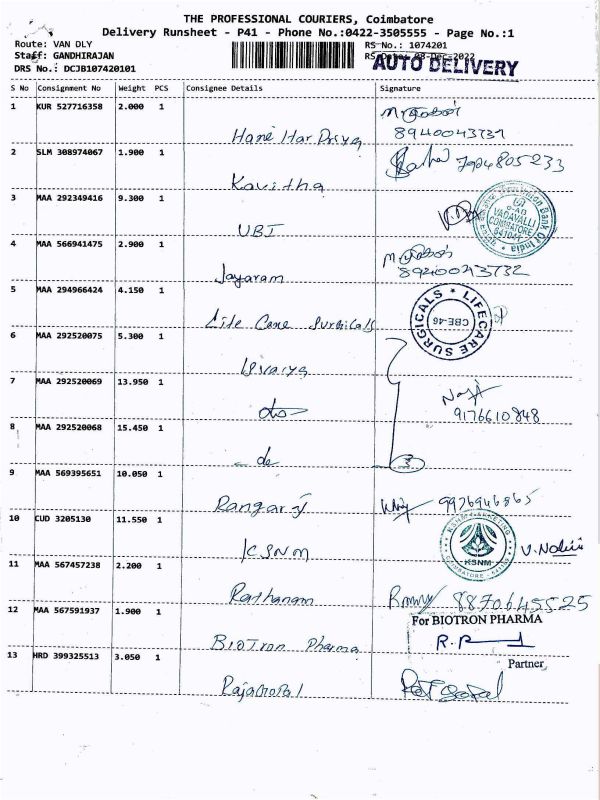 THE PROFESSIONAL COURIERS, Coimbatore
Delivery Runsheet - P41 - Phone No.:0422-3505555 - Page No.:1
Route: VAN DLY
Staff: GANDHIRAJAN
DRS No.: DCJB107420101
RS No.: 1074201
RS Date: 08-Dec-2022
AUTO DELIVERY
S No Consignment No Weight PCS Consignee Details Signature
1 KUR 527716358 2.000 1
Hari Har Priya 8940043731
2 SLM 308974067 1.900 1
Kavitha 7904805233
3 MAA 292349416 9.300 1
UBI
VADAVALLI
COIMBATORE
641041
Union Bank of India
4 MAA 566941475 2.900 1
Jayaram 8940043732
5 MAA 294966424 4.150 1
Life Care Surgicals
LIFECARE SURGICALS
CBE-46
6 MAA 292520075 5.300 1
7 MAA 292520069 13.950 1
do 9176610848
8 MAA 292520068 15.450 1
do 3
9 MAA 569395651 10.050 1
Rangaraj 9976946865
10 CUD 3205130 11.550 1
KSNM
KSNM MARKETING
KSNM
COIMBATORE
11 MAA 567457238 2.200 1
Rathanam 8870645525
12 MAA 567591937 1.900 1
For BIOTRON PHARMA
BioTron Pharma
Partner
13 HRD 399325513 3.050 1
Rajagopal